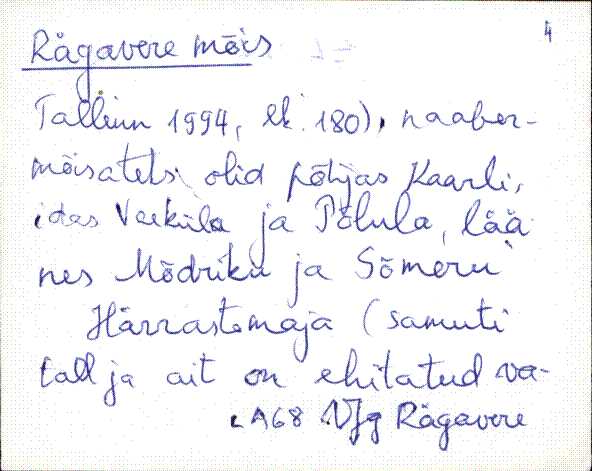 4
Rägavere mõis
Tallinn 1994, lk. 180), naaber-
mõisateks olid põhjas Kaarli,
idas Vaeküla ja Põlula, lää
nes Mõdriku ja Sõmeru
Härrastemaja (samuti
tall ja ait on ehitatud va-
A68 Vjg Rägavere